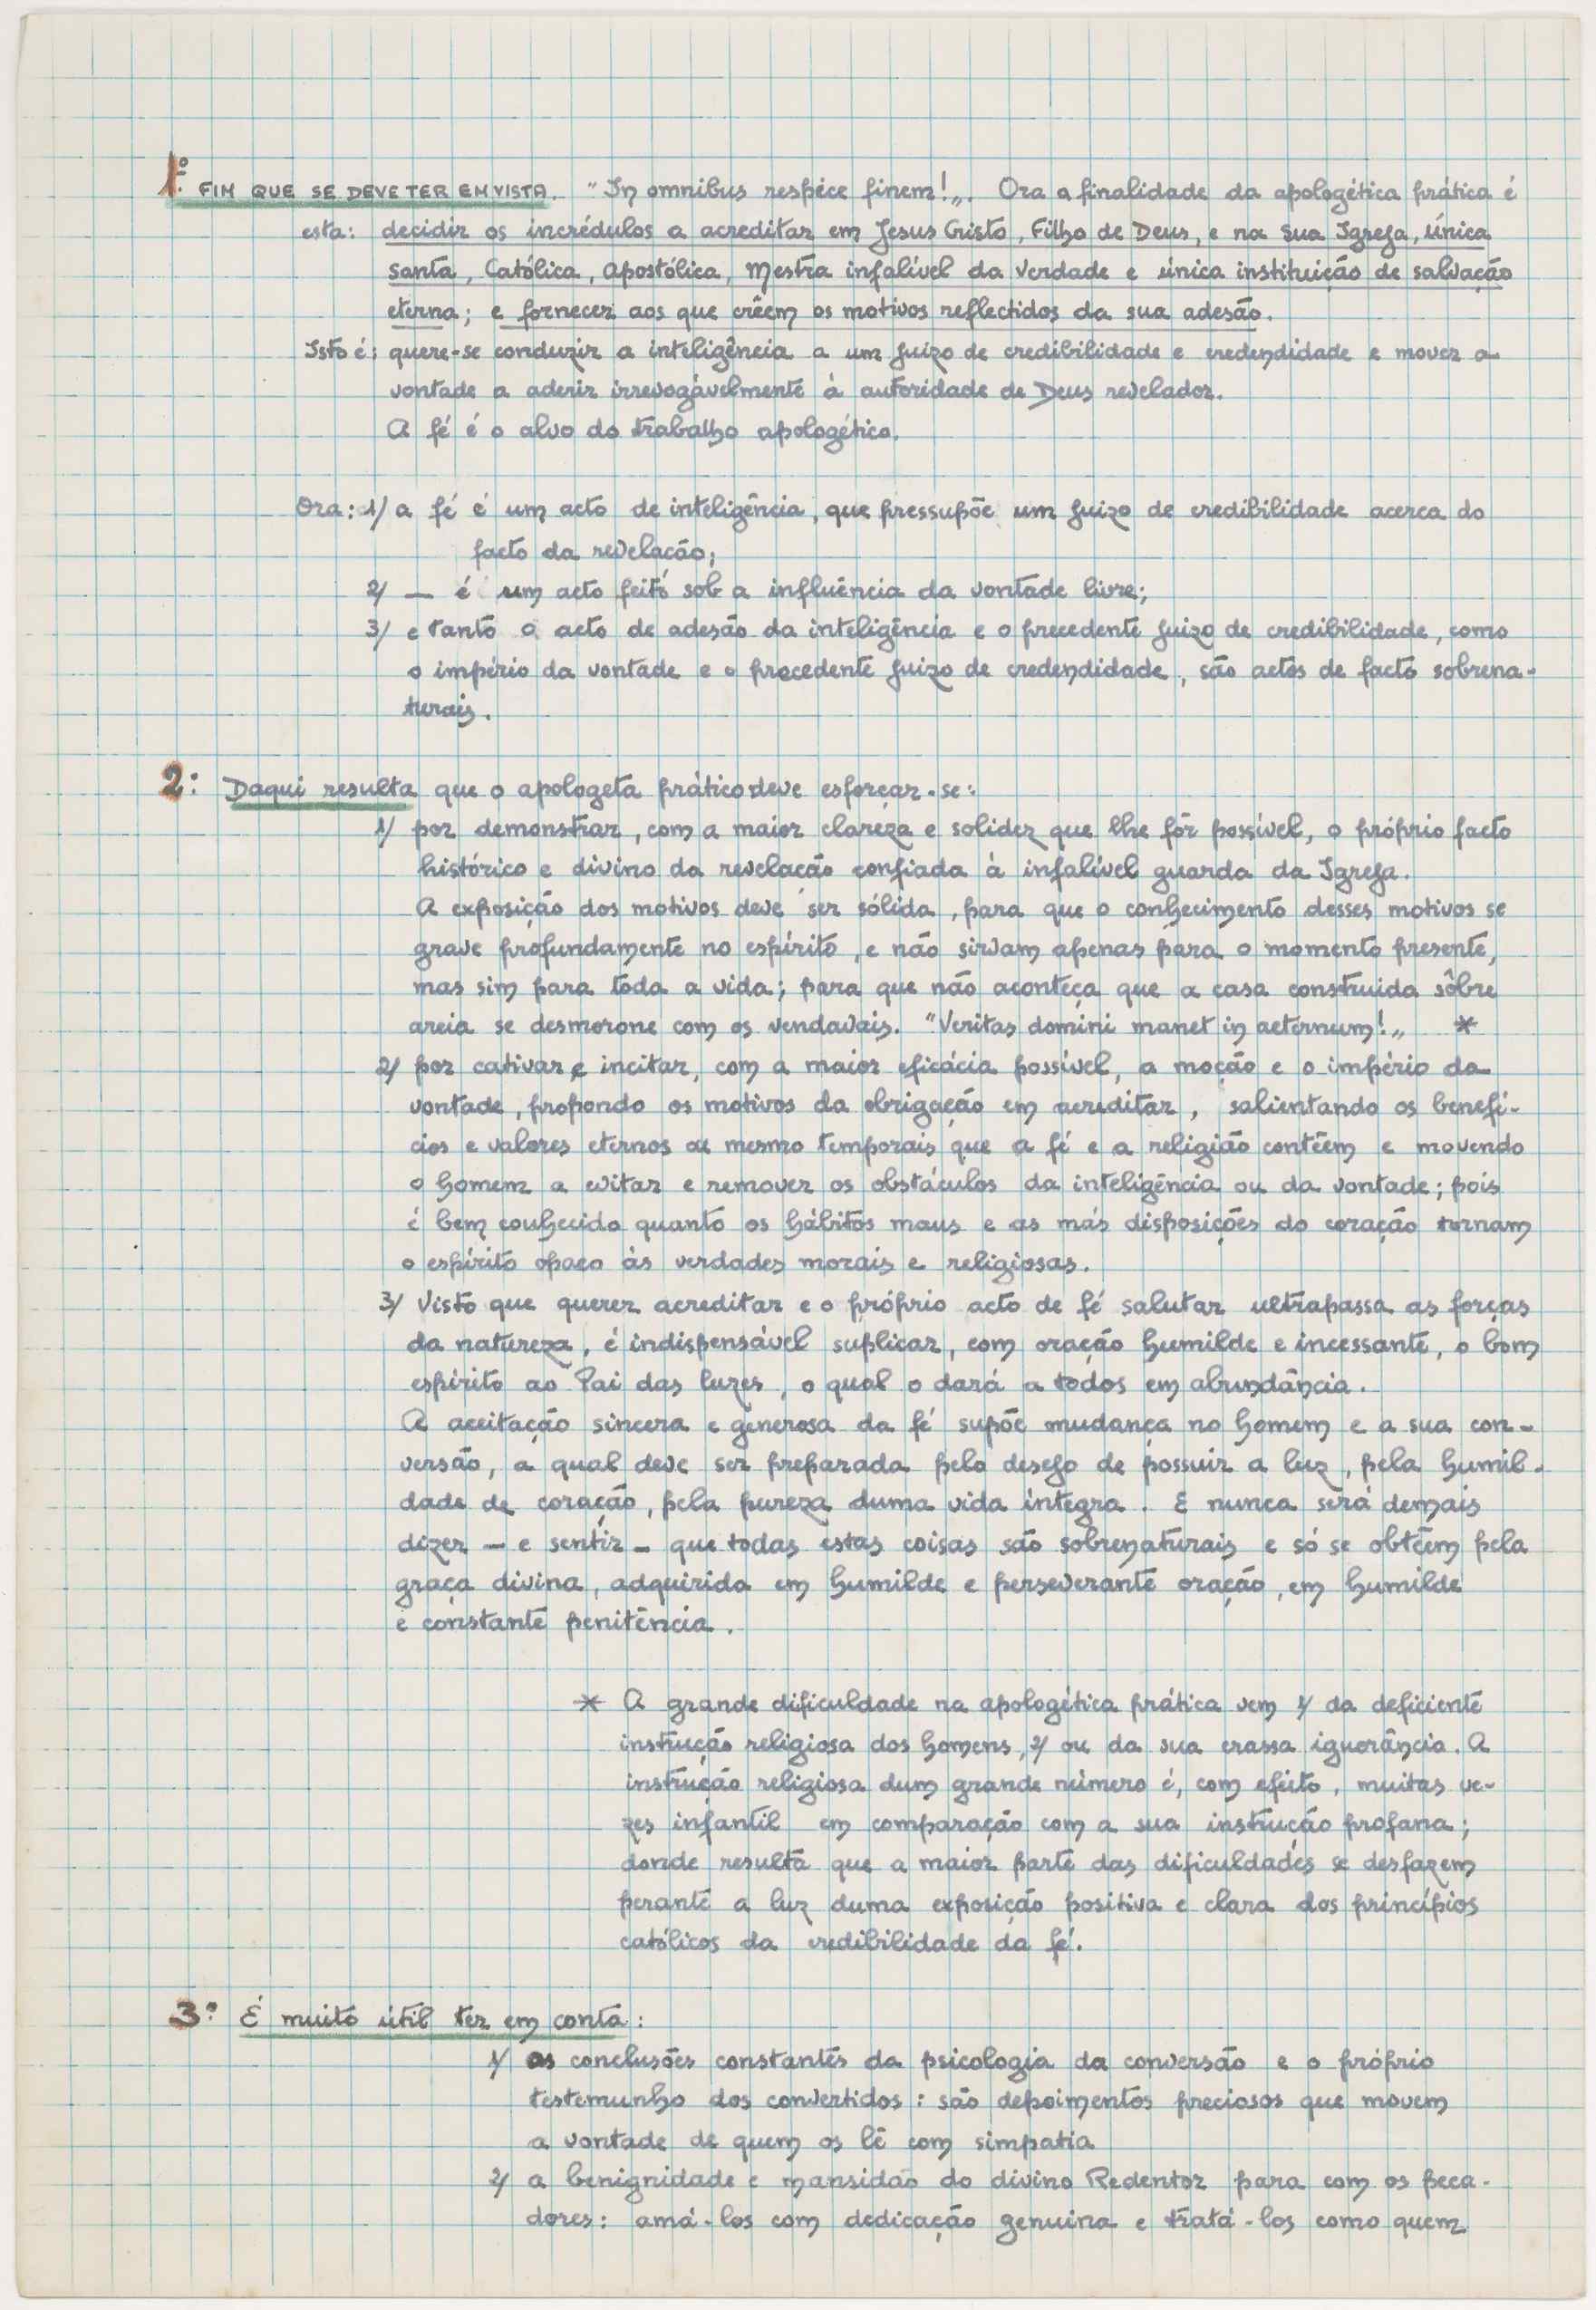 1.º FIM QUE SE DEVE TER EM VISTA. "In omnibus respéce finem!„. Ora a finalidade da apologética prática é
esta: decidir os incrédulos a acreditar em Jesus Cristo, Filho de Deus, e na sua Igreja, única
santa, Católica, apostólica, Mestra infalível da Verdade e única instituição de salvação
eterna; e fornecer aos que crêem os motivos reflectidos da sua adesão.
Isto é: quere-se conduzir a inteligência a um juizo de credibilidade e credendidade e mover a
vontade a aderir irrevogàvelmente à autoridade de Deus revelador.
A fé é o alvo do trabalho apologético.
Ora: 1/ a fé é um acto de inteligência, que pressupõe um juizo de credibilidade acerca do
facto da revelação;
2/ — é um acto feito sob a influência da vontade livre;
3/ e tanto o acto de adesão da inteligência e o precedente juizo de credibilidade, como
o império da vontade e o precedente juizo de credendidade, são actos de facto sobrena-
turais.
2.º Daqui resulta que o apologeta prático deve esforçar-se:
1/ por demonstrar, com a maior clareza e solidez que lhe fôr possível, o próprio facto
histórico e divino da revelação confiada à infalível guarda da Igreja.
A exposição dos motivos deve ser sólida, para que o conhecimento desses motivos se
grave profundamente no espírito, e não sirvam apenas para o momento presente,
mas sim para toda a vida; para que não aconteça que a casa construida sôbre
areia se desmorone com os vendavais. "Veritas domini manet in aeternum!„ *
2/ por cativar e incitar, com a maior eficácia possível, a moção e o império da
vontade, propondo os motivos da obrigação em acreditar, salientando os benefí-
cios e valores eternos ou mesmo temporais que a fé e a religião contêem e movendo
o homem a evitar e remover os obstáculos da inteligência ou da vontade; pois
é bem conhecido quanto os hábitos maus e as más disposições do coração tornam
o espírito opaco às verdades morais e religiosas.
3/ Visto que querer acreditar e o próprio acto de fé salutar ultrapassa as forças
da natureza, é indispensável suplicar, com oração humilde e incessante, o bom
espírito ao Pai das luzes, o qual o dará a todos em abundância.
A aceitação sincera e generosa da fé supõe mudança no homem e a sua con-
versão, a qual deve ser preparada pelo desejo de possuir a luz, pela humil-
dade de coração, pela pureza duma vida íntegra. E nunca será demais
dizer — e sentir — que todas estas coisas são sobrenaturais e só se obtêem pela
graça divina, adquirida em humilde e perseverante oração, em humilde
e constante penitência.
* A grande dificuldade na apologética prática vem 1/ da deficiente
instrução religiosa dos homens, 2/ ou da sua crassa ignorância. A
instrução religiosa dum grande número é, com efeito, muitas ve-
zes infantil em comparação com a sua instrução profana;
donde resulta que a maior parte das dificuldades se desfazem
perante a luz duma exposição positiva e clara dos princípios
católicos da credibilidade da fé.
3.º É muito útil ter em conta:
1/ as conclusões constantes da psicologia da conversão e o próprio
testemunho dos convertidos: são depoimentos preciosos que movem
a vontade de quem os lê com simpatia
2/ a benignidade e mansidão do divino Redentor para com os peca-
dores: amá-los com dedicação genuina e tratá-los como quem